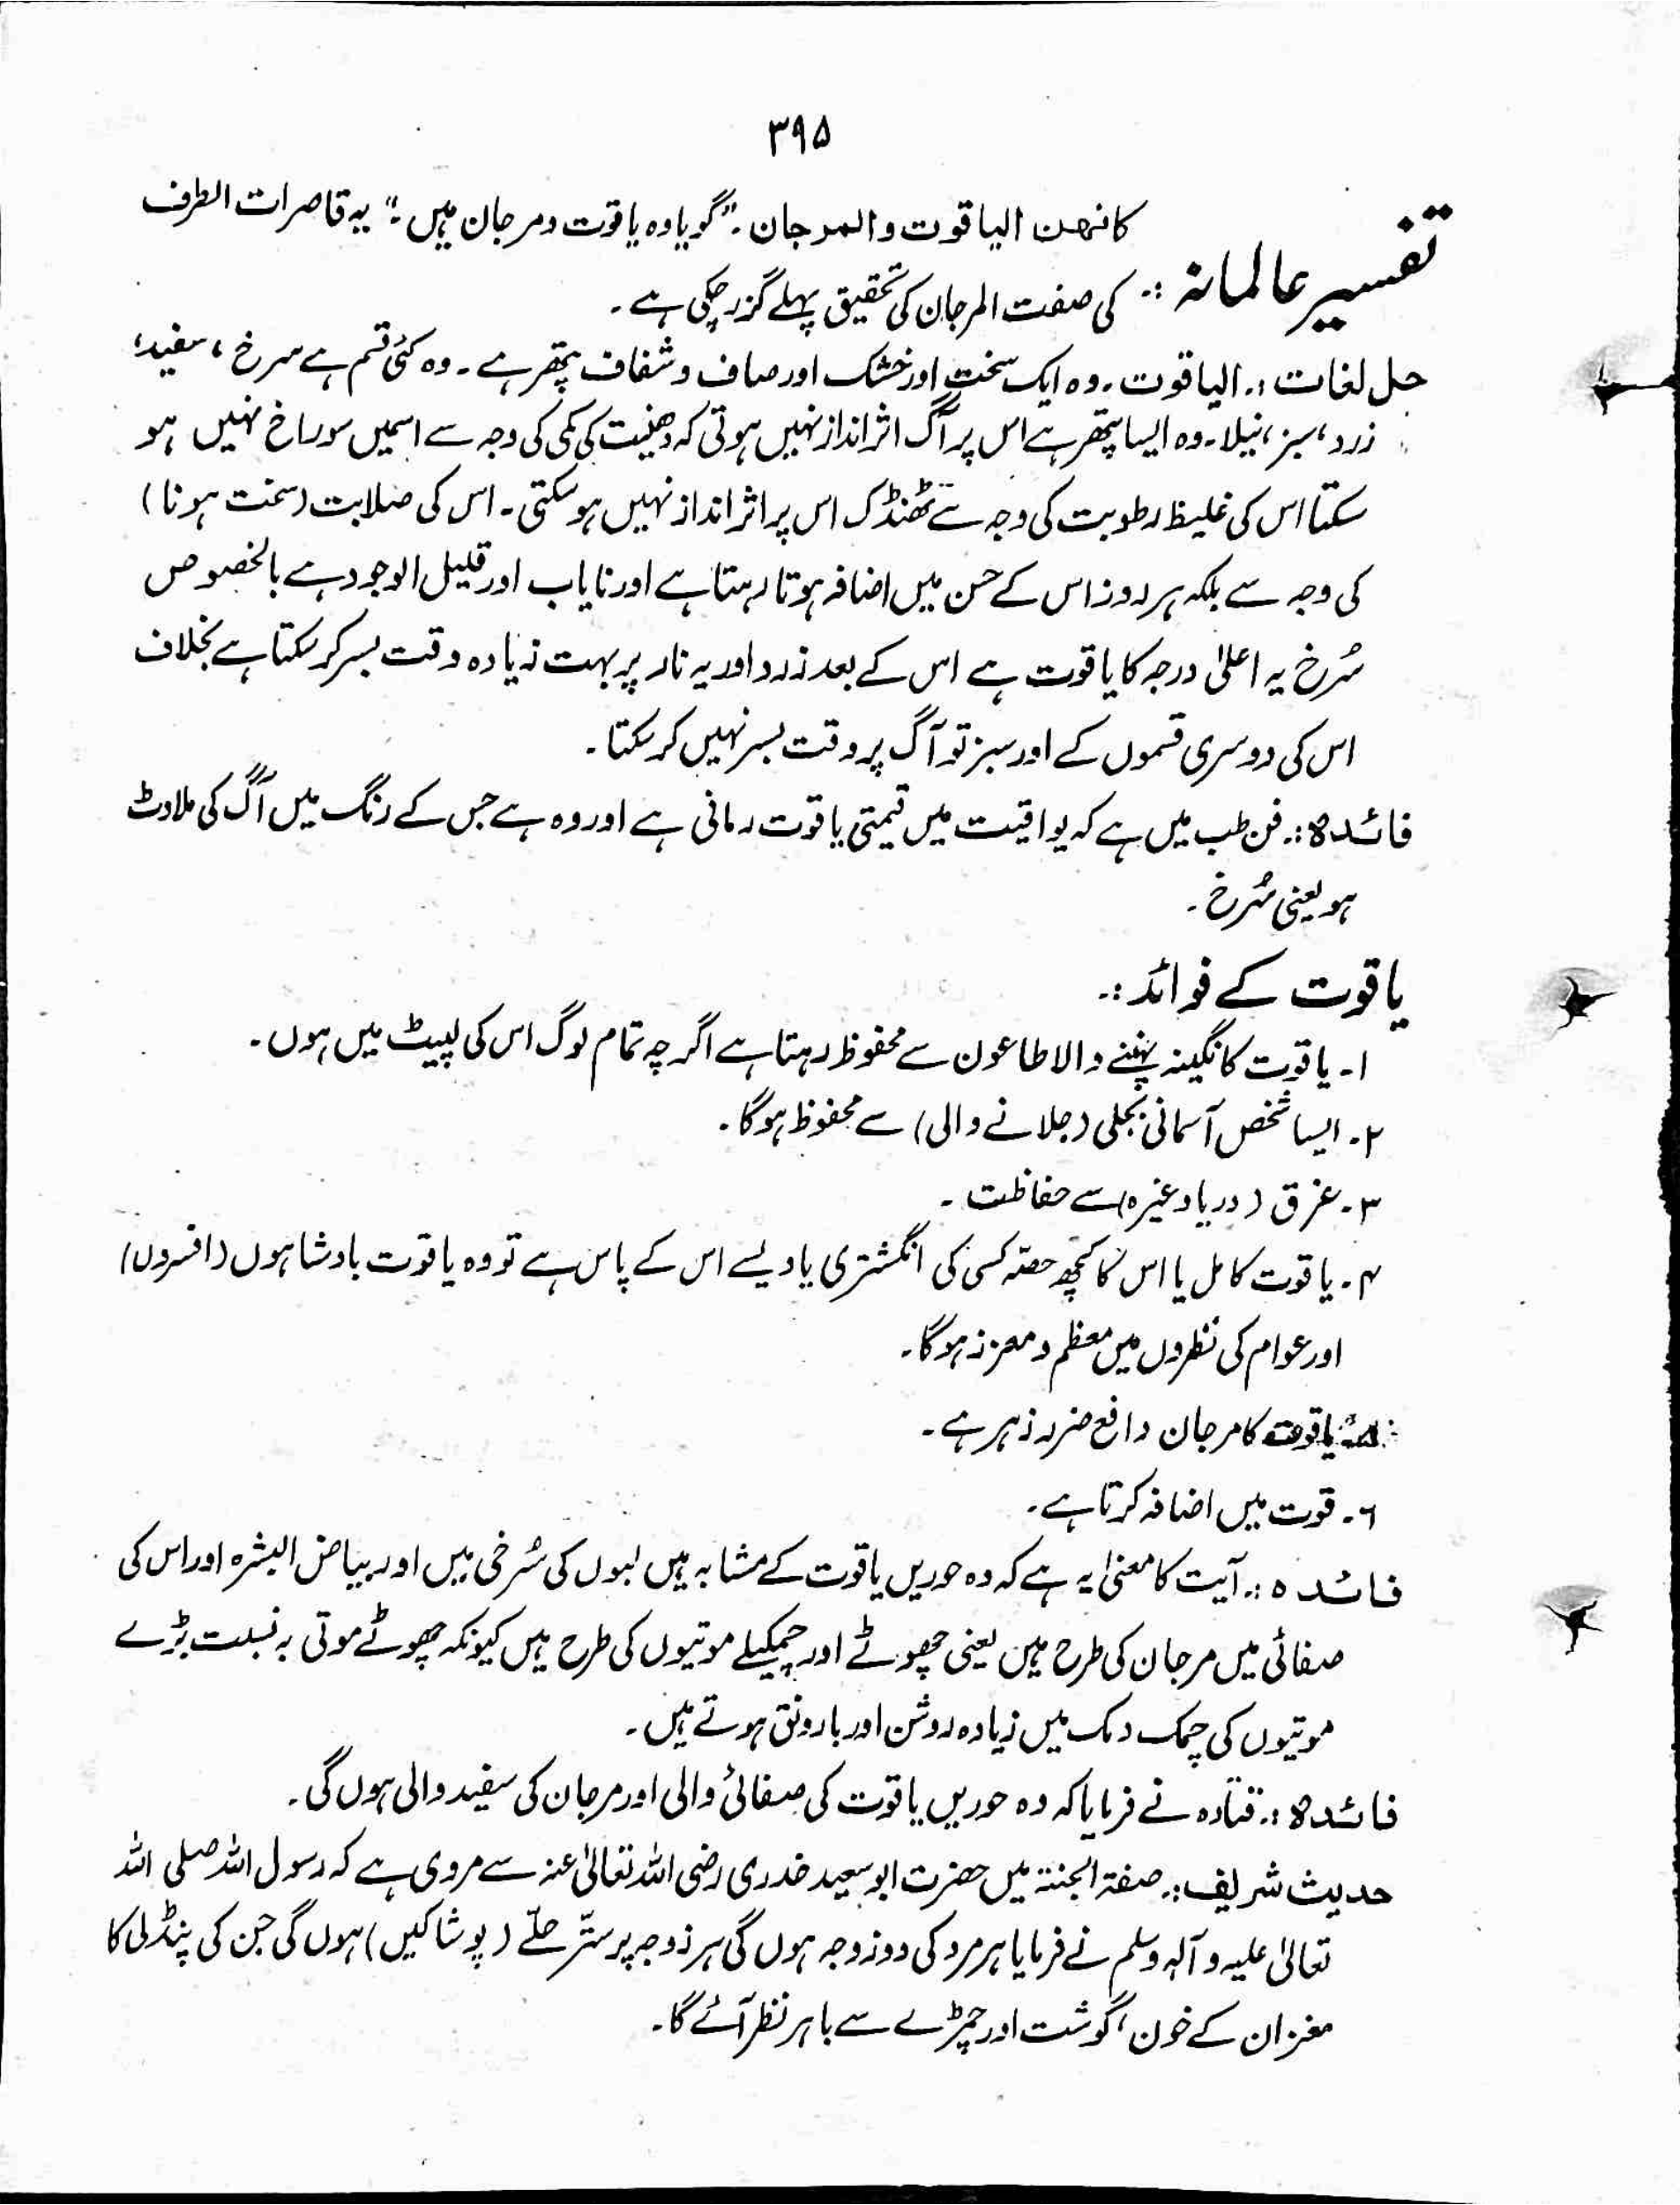 ۳۹۵
تفسیر عالمانہ :۔ کانھن الیاقوت والمرجان ۔ "گویا وہ یاقوت ومرجان ہیں ۔" یہ قاصرات الطرف
کی صفت المرجان کی تحقیق پہلے گزر چکی ہے ۔
حل لغات :۔ الیاقوت ۔ وہ ایک سخت اور خشک اور صاف و شفاف پتھر ہے ۔ وہ کئی قسم ہے سرخ ، سفید ،
زرد ، سبز ، نیلا ۔ وہ ایسا پتھر ہے اس پر آگ اثر انداز نہیں ہوتی کہ دھنیت کی کمی کی وجہ سے اسمیں سوراخ نہیں ہو
سکتا اس کی غلیظ رطوبت کی وجہ سے ٹھنڈک اس پر اثر انداز نہیں ہو سکتی ۔ اس کی صلابت (سخت ہونا)
کی وجہ سے بلکہ ہر روز اس کے حسن میں اضافہ ہوتا رہتا ہے اور نایاب اور قلیل الوجود ہے بالخصوص
سُرخ یہ اعلیٰ درجہ کا یاقوت ہے اس کے بعد زرد اور یہ نار پر بہت زیادہ وقت بسر کر سکتا ہے بخلاف
اس کی دوسری قسموں کے اور سبز تو آگ پر وقت بسر نہیں کر سکتا ۔
فائدہ :۔ فن طب میں ہے کہ یواقیت میں قیمتی یاقوت رمانی ہے اور وہ ہے جس کے رنگ میں آگ کی ملاوٹ
ہو یعنی سُرخ ۔
یاقوت کے فوائد :۔
۱۔ یاقوت کا نگینہ پہننے والا طاعون سے محفوظ رہتا ہے اگرچہ تمام لوگ اس کی لپیٹ میں ہوں ۔
۲۔ ایسا شخص آسمانی بجلی (جلانے والی) سے محفوظ ہوگا ۔
۳۔ غرق (دریا وغیرہ) سے حفاظت ۔
۴۔ یاقوت کامل یا اس کا کچھ حصّہ کسی کی انگشتری یا ویسے اس کے پاس ہے تو وہ یاقوت بادشاہوں (افسروں)
اور عوام کی نظروں میں معظم و معزز ہوگا ۔
یاقوت کا مرجان دافع ضرر زہر ہے ۔
۶۔ قوت میں اضافہ کرتا ہے ۔
فائدہ :۔ آیت کا معنیٰ یہ ہے کہ وہ حوریں یاقوت کے مشابہ ہیں لبوں کی سُرخی میں اور بیاض البشرہ اور اس کی
صفائی میں مرجان کی طرح ہیں یعنی چھوٹے اور چمکیلے موتیوں کی طرح ہیں کیونکہ چھوٹے موتی بہ نسبت بڑے
موتیوں کی چمک دمک میں زیادہ روشن اور بارونق ہوتے ہیں ۔
فائدہ :۔ قتادہ نے فرمایا کہ وہ حوریں یاقوت کی صفائی والی اور مرجان کی سفید والی ہوں گی ۔
حدیث شریف :۔ صفۃ الجنۃ میں حضرت ابو سعید خدری رضی اللہ تعالیٰ عنہ سے مروی ہے کہ رسول اللہ صلی اللہ
تعالیٰ علیہ و آلہ وسلم نے فرمایا ہر مرد کی دو زوجہ ہوں گی ہر زوجہ پر ستّر حلّے (پوشاکیں) ہوں گی جن کی پنڈلی کا
مغز ان کے خون ، گوشت اور چمڑے سے باہر نظر آئے گا ۔